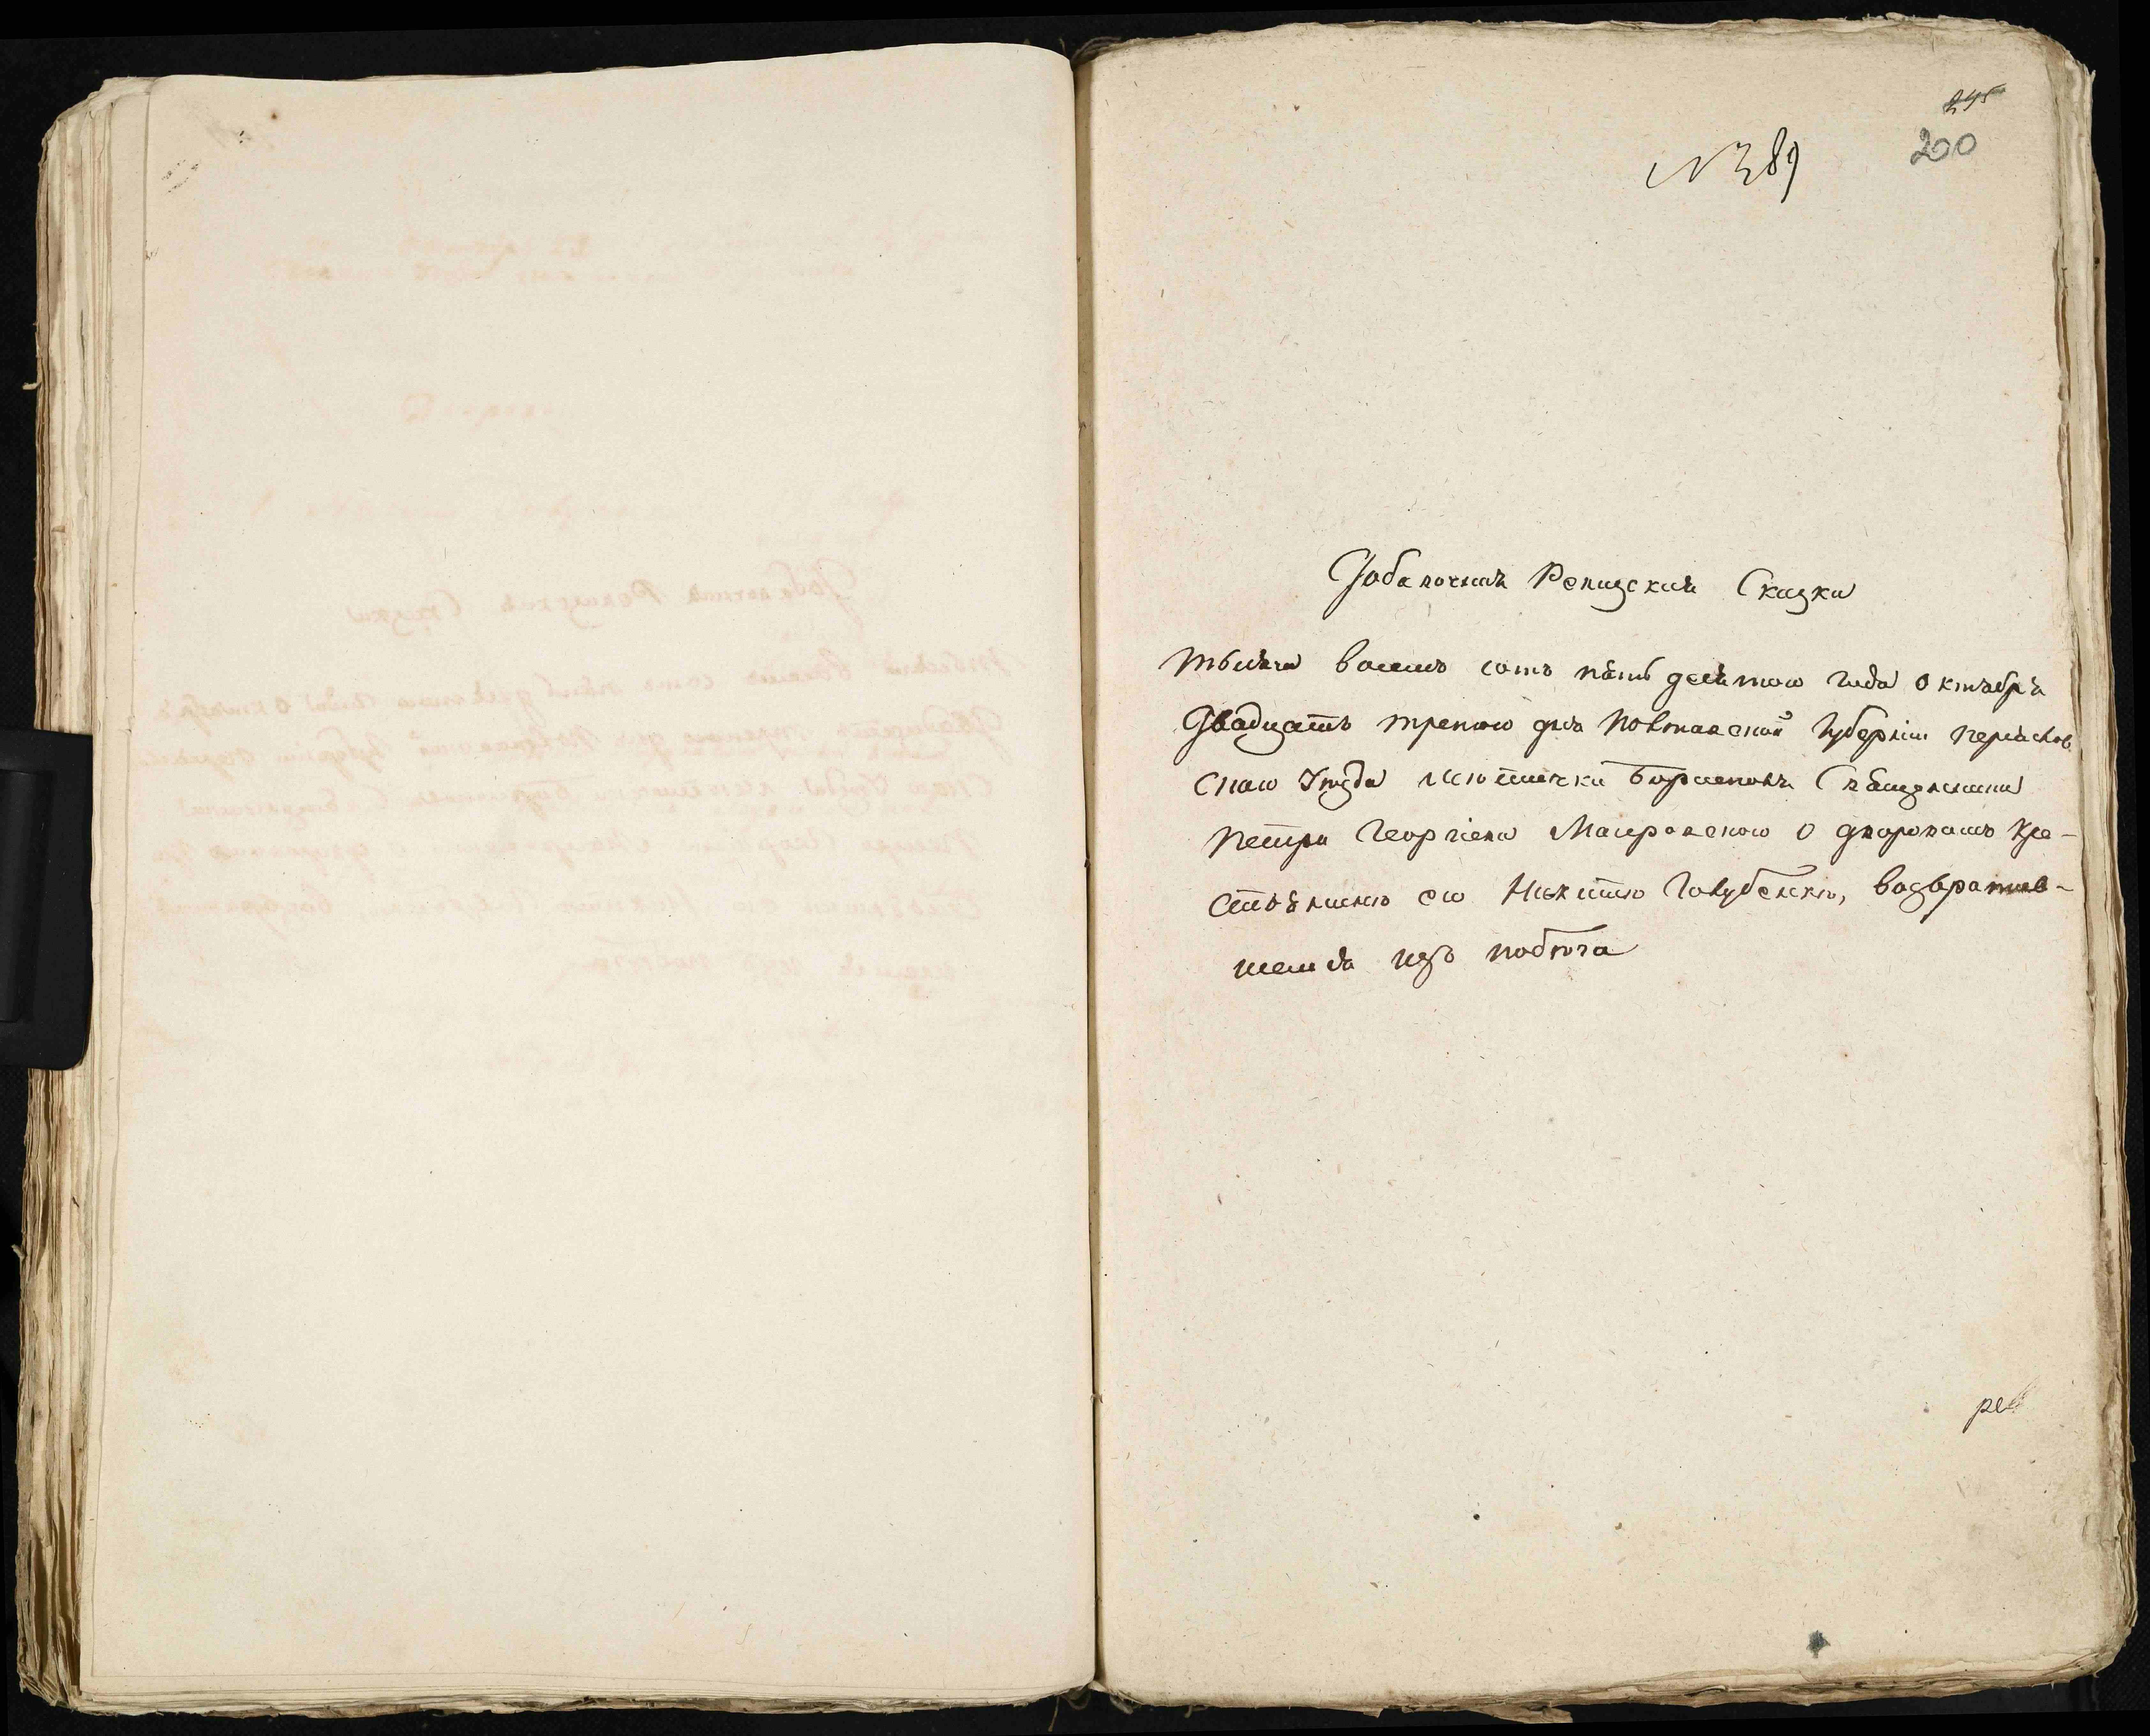 245
200
№ 389
Добавочная Ревизская Сказка
тысяча восемь сотъ пять десятого года Октября
Двадцать третего дня Полтавской Губерніи Переяслов
скаго Уезда местечка Борисполя Священника
Петра Георгіева о дворовомъ кре-
стьянине его Никите Голубенке, возвратив-
шемся изъ побега
рев